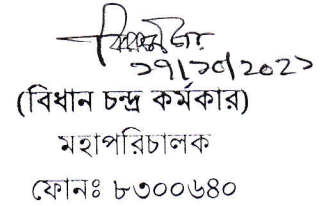 ২৭/১০/2021
(বিধান চন্দ্র কর্মকার)
মহাপরিচালক
ফোনঃ ৮৩০০৬৪০